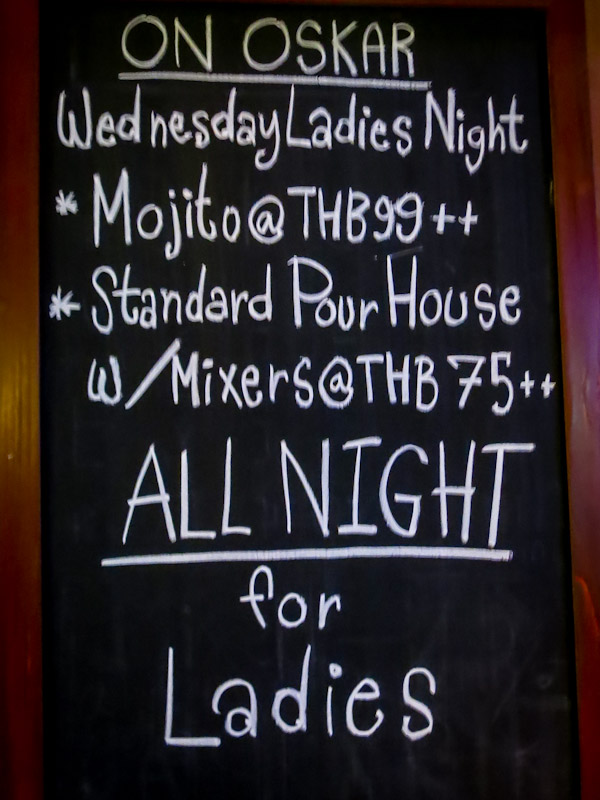 ON OSKAR
Wednesday Ladies Night
* Mojito@THB99++
* Standard Pour House
w/Mixers@THB 75++
ALL NIGHT
for
Ladies